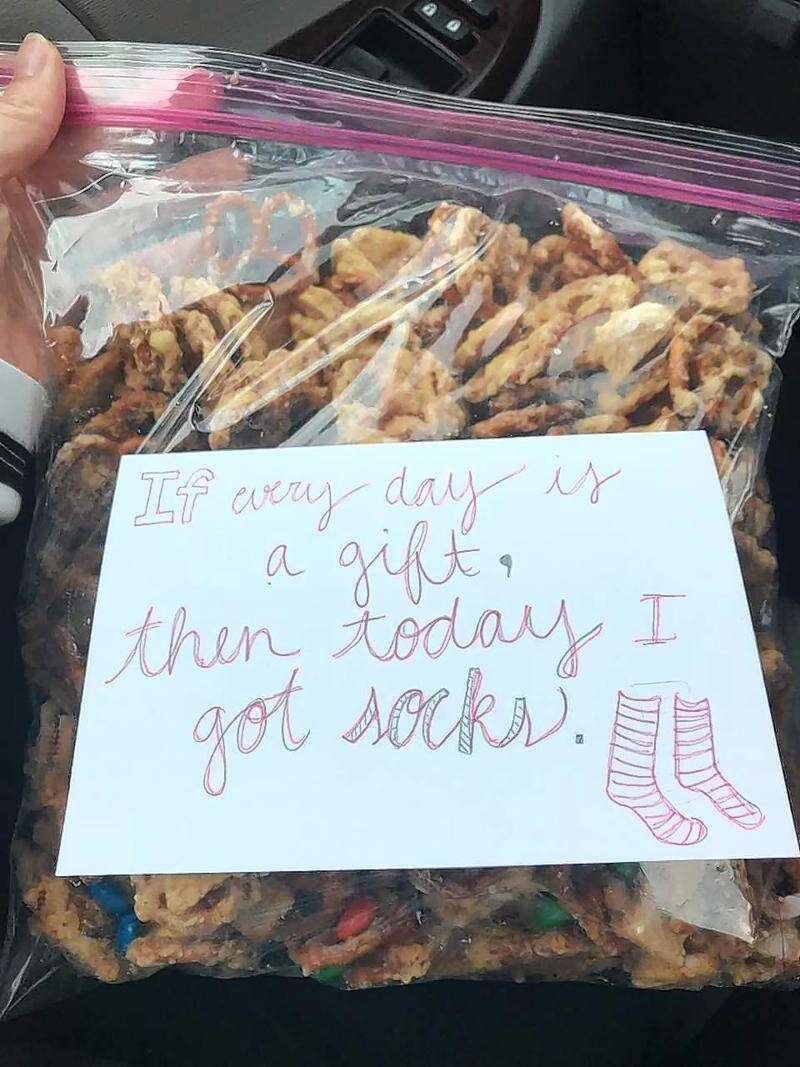 If every day is
a gift,
then today I
got socks.